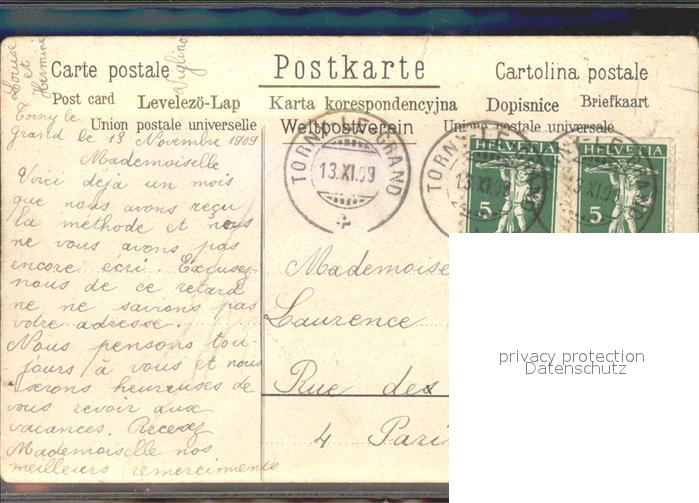 Louise
et
Hermine
Viglino
Carte postale
Postkarte
Cartolina postale
Post card
Levelezö-Lap
Karta korespondencyjna
Dopisnice
Briefkaart
Union postale universelle
Weltpostverein
Union postale universale
Torny le
grand le 13 Novembre 1909
Mademoiselle
Voici déjà un mois
que nous avons reçu
la méthode et nous
ne vous avons pas
encore écri. Excusez-
nous de ce retard
ne ne savions pas
votre adresse.
Nous pensons tou-
jours à vous et nous
serons heureuses de
vous revoir aux
vacances. Recevez
Mademoiselle nos
meilleurs remerciments
TORNY-LE-GRAND
13.XI.09
TORNY-LE-GRAND
13.XI.09
HELVETIA
5
HELVETIA
5
Mademoise
Laurence
Rue des
4 Pari
privacy protection
Datenschutz